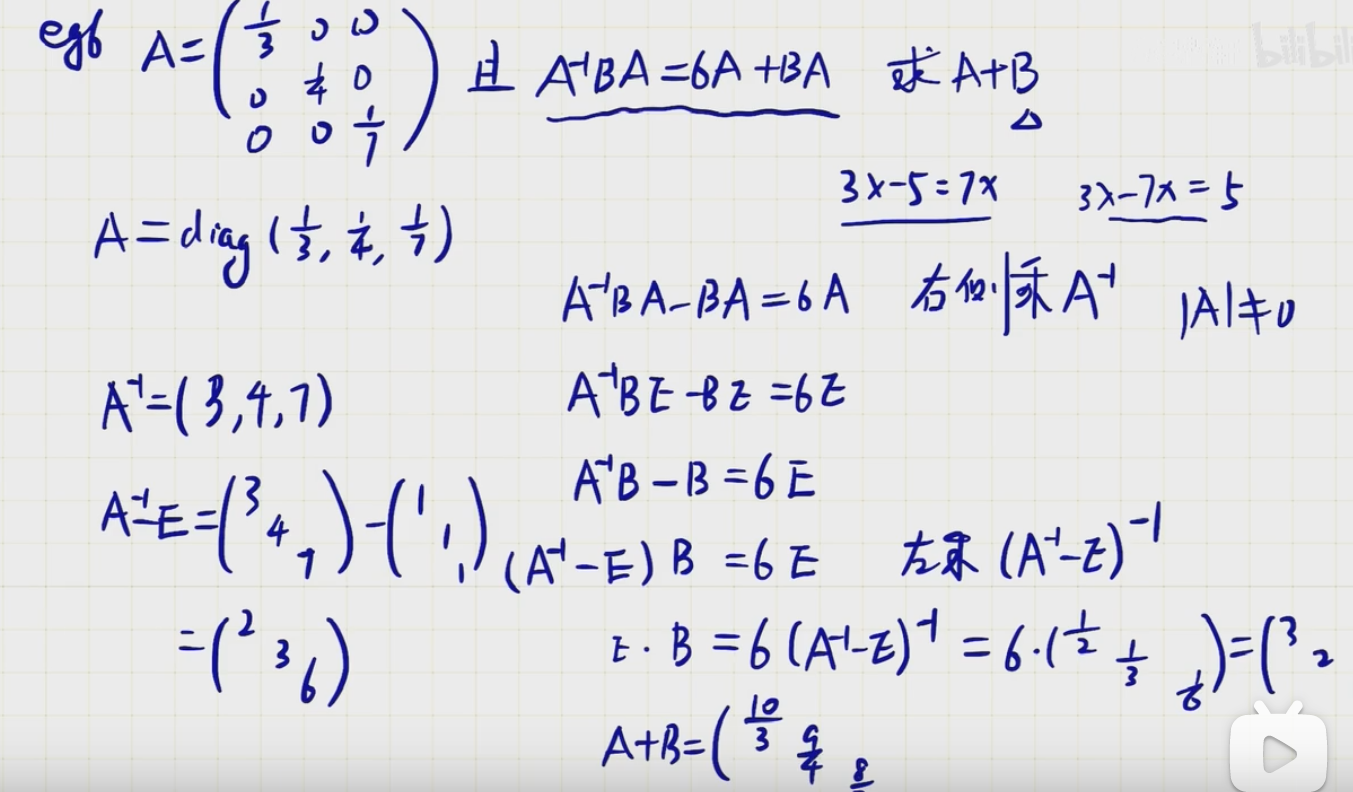 eg6 A=(1/3 0 0
0 1/4 0
0 0 1/7) 且 A⁻¹BA=6A+BA 求A+B
3x-5=7x 3x-7x=5
A=diag(1/3, 1/4, 1/7)
A⁻¹BA-BA=6A 右 乘A⁻¹ |A|≠0
A⁻¹=(3,4,7) A⁻¹BE-BE=6E
A⁻¹B-B=6E
A⁻¹-E=(3 4 7)-(1 1 1) (A⁻¹-E)B=6E 左乘(A⁻¹-E)⁻¹
=(2 3 6) E·B=6(A⁻¹-E)⁻¹=6·(1/2 1/3 1/6)=(3 2
A+B=(10/3 9/4 8
bilibili